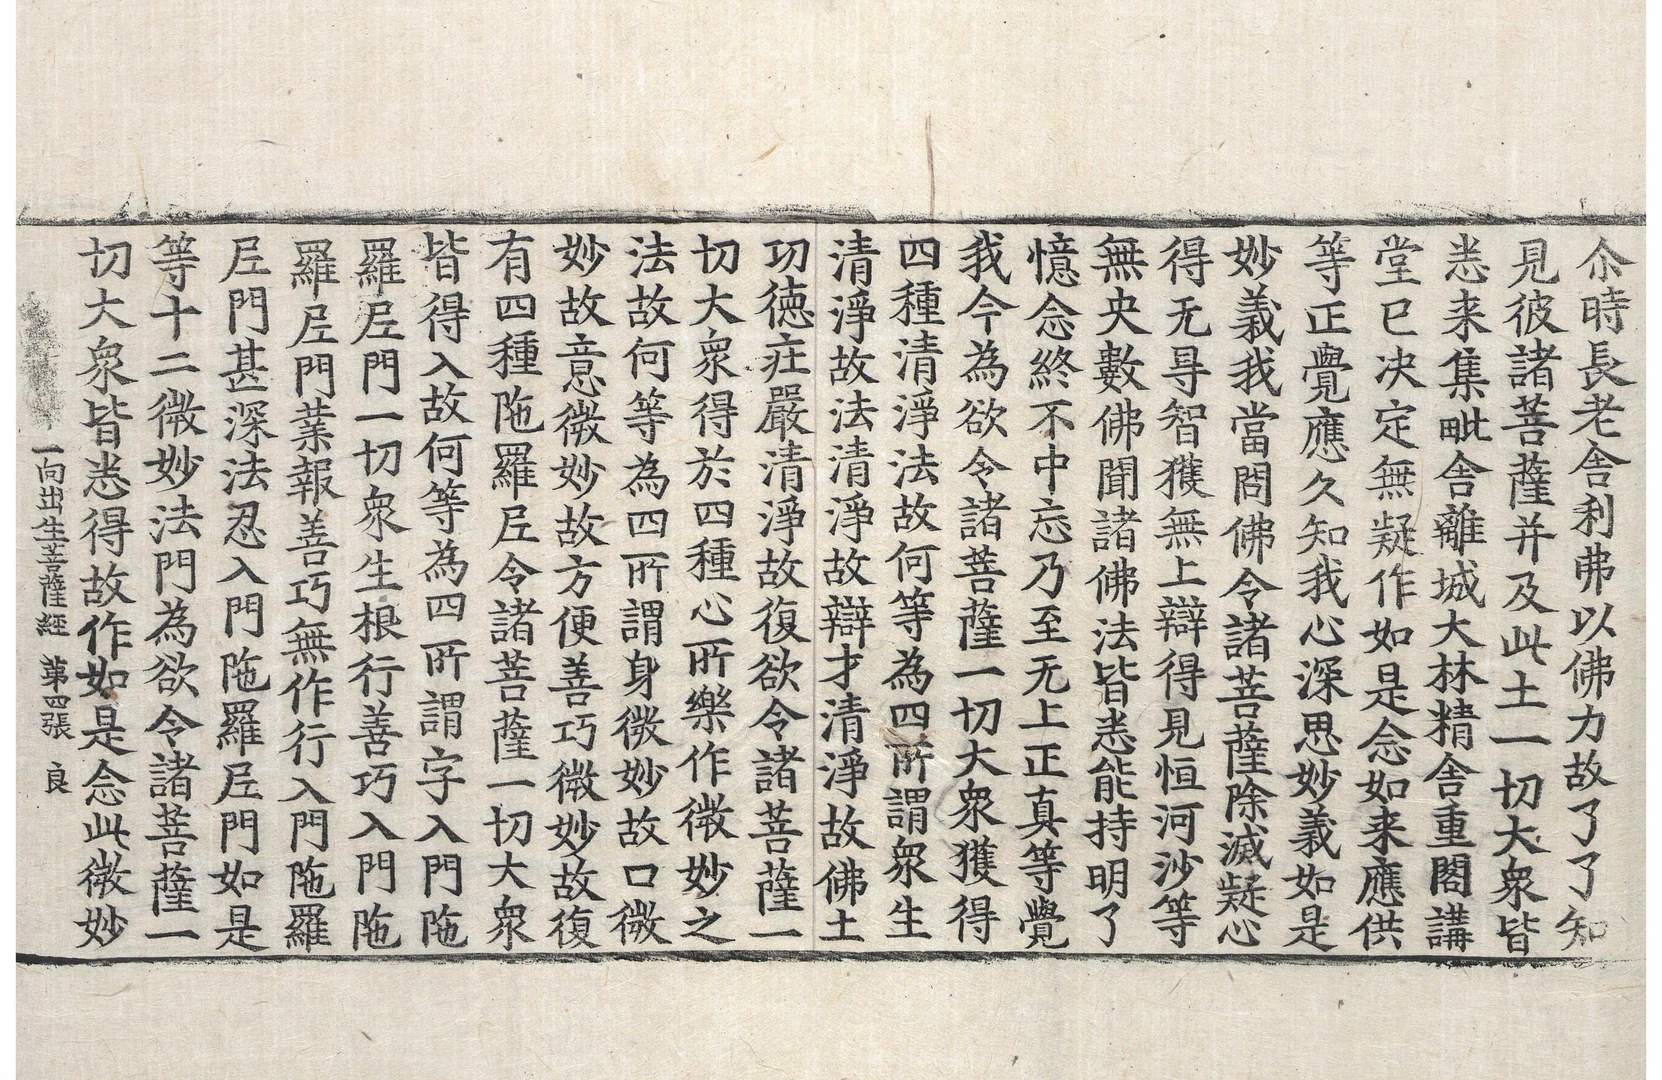 尒時長老舍利弗以佛力故了了知
見彼諸菩薩并及此土一切大衆皆
悉来集毗舍離城大林精舍重閣講
堂已决定無疑作如是念如来應供
等正覺應久知我心深思妙義如是
妙義我當問佛令諸菩薩除滅疑心
得无㝵智獲無上辯得見恒河沙等
無央數佛聞諸佛法皆悉能持明了
憶念終不中忘乃至无上正真等覺
我今為欲令諸菩薩一切大衆獲得
四種清淨法故何等為四所謂衆生
清淨故法清淨故辯才清淨故佛土
功德庄嚴清淨故復欲令諸菩薩一
切大衆得於四種心所樂作微妙之
法故何等為四所謂身微妙故口微
妙故意微妙故方便善巧微妙故復
有四種陁羅𡰱令諸菩薩一切大衆
皆得入故何等為四所謂字入門陁
羅𡰱門一切衆生根行善巧入門陁
羅𡰱門業報善巧無作行入門陁羅
𡰱門甚深法忍入門陁羅𡰱門如是
等十二微妙法門為欲令諸菩薩一
切大衆皆悉得故作如是念此微妙
一向出生菩薩經 第四張 良